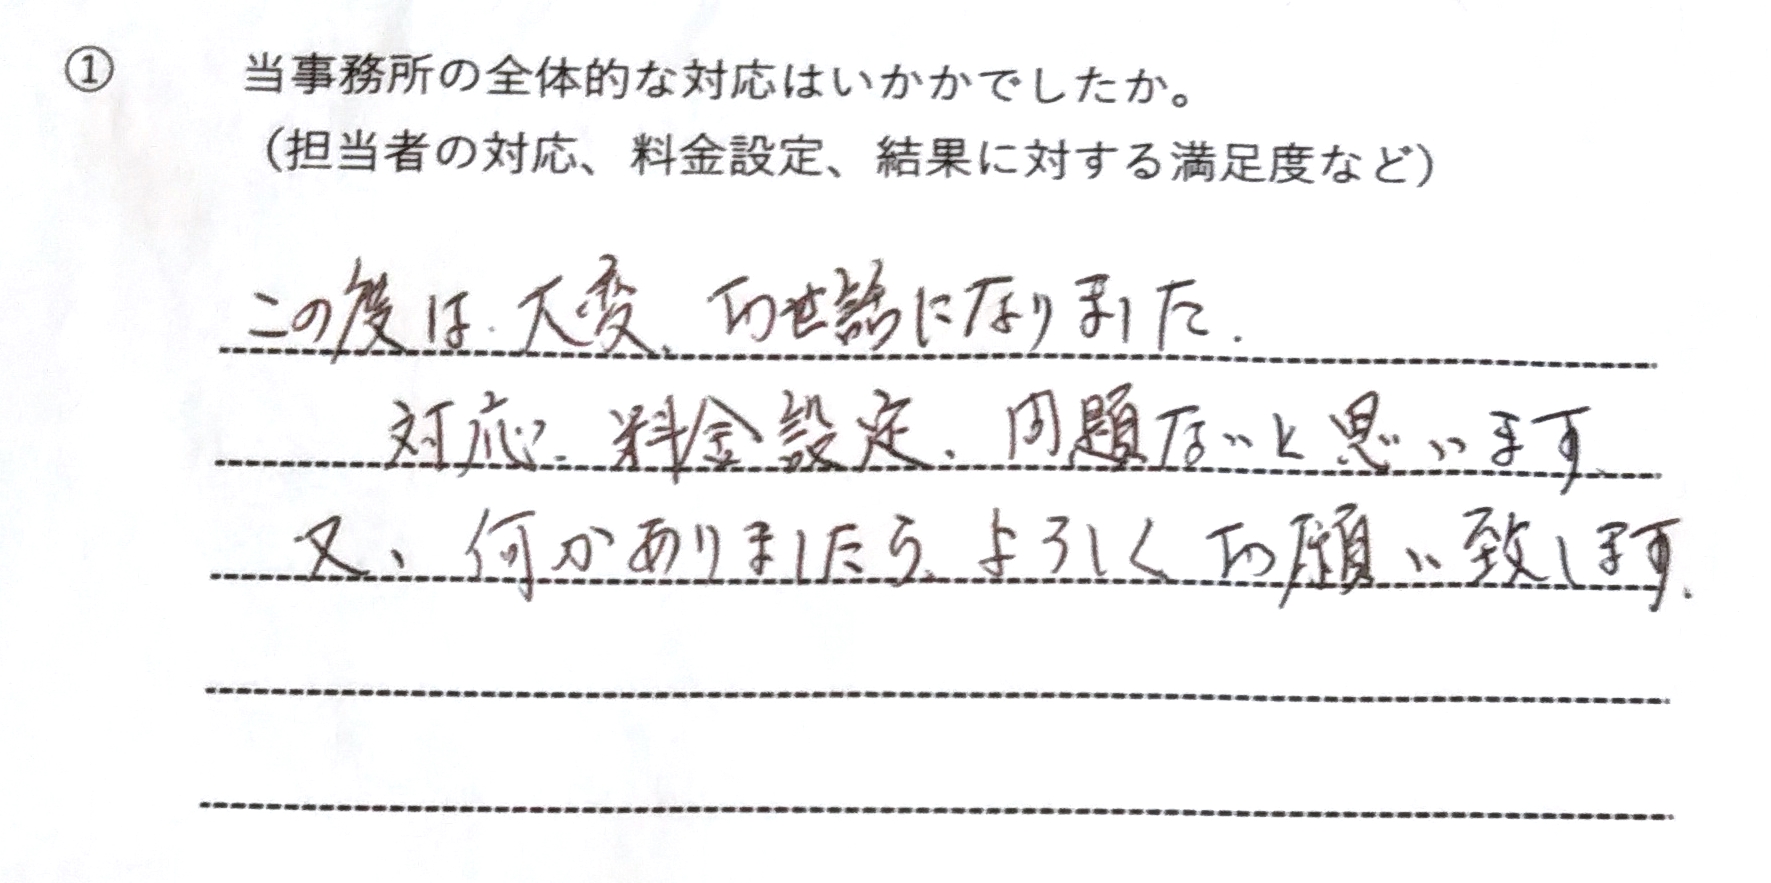 ① 当事務所の全体的な対応はいかかでしたか。
（担当者の対応、料金設定、結果に対する満足度など）
この度は、大変、お世話になりました.
対応、料金設定、問題ないと思います.
又、何かありましたら、よろしくお願い致します.